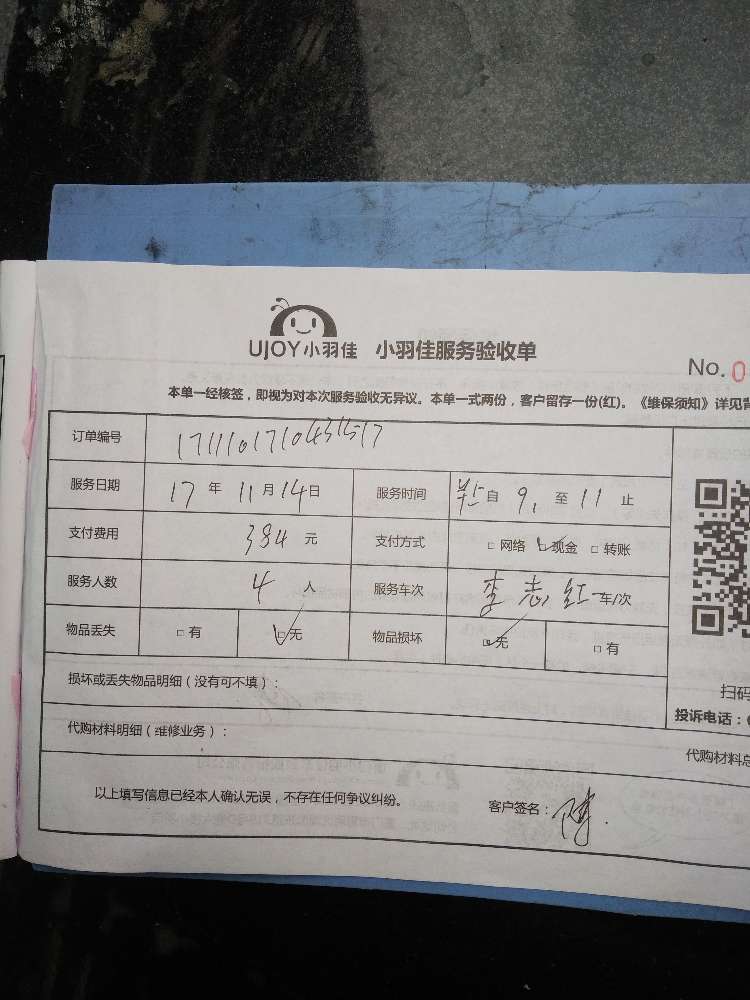 UJOY小羽佳 小羽佳服务验收单
No. 0
本单一经核签，即视为对本次服务验收无异议。本单一式两份，客户留存一份(红)。《维保须知》详见背
订单编号
服务日期 17年 11月 14日 服务时间 自 9 至 11 止
支付费用 384 元 支付方式 □网络 ☑现金 □转账
服务人数 4 人 服务车次 李志红 车/次
物品丢失 □有 ☑无 物品损坏 ☑无 □有
损坏或丢失物品明细（没有可不填）：
扫码
投诉电话：
代购材料明细（维修业务）：
代购材料总
以上填写信息已经本人确认无误，不存在任何争议纠纷。 客户签名：